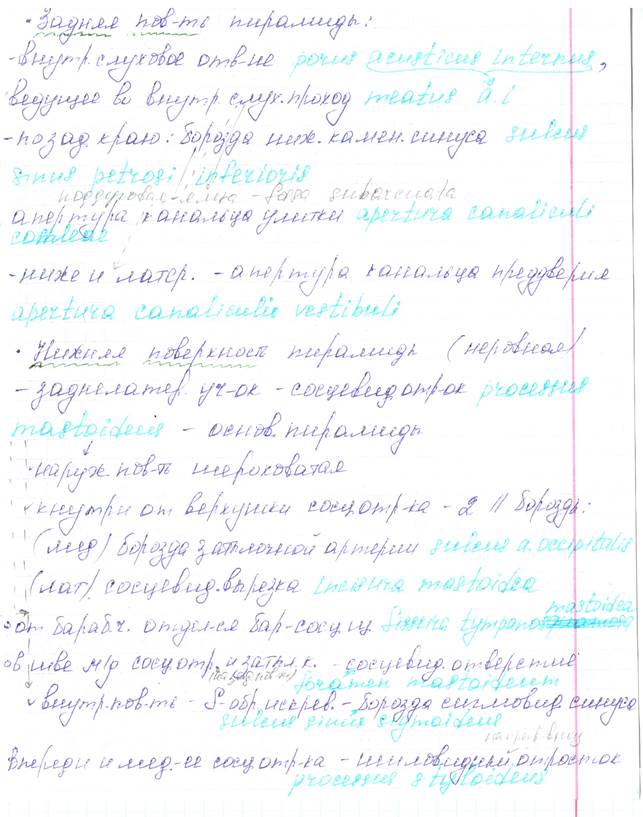 · Задняя пов-ть пирамиды:
- внутр. слуховое отв-ие porus acusticus internus,
ведущее во внутр. слух. проход meatus a. i
- по зад. краю: борозда ниж. камен. синуса sulcus
sinus petrosi inferioris
поддуговая ямка - fossa subarcuata
апертура канальца улитки apertura canaliculi
cochleae
- ниже и латер. - апертура канальца преддверия
apertura canaliculi vestibuli
· Нижняя поверхность пирамиды (неровная)
- заднелатер. уч-ок - сосцевид. отр-ок processus
mastoideus - основ. пирамиды
· наруж. пов-ть шероховатая
✓ кнутри от верхушки сосц. отр-ка - 2 || борозды:
(мед) борозда затылочной артерии sulcus a. occipitalis
(лат) сосцевид. вырезка incisura mastoidea
от барабч. отдел-ся бар-сосц. щ. fissura tympanomastoidea
в шве м/д сосц. отр. и затыл. к. - сосцевид. отверстие
(на зад. пов-ти) foramen mastoideum
✓ внутр. пов-ть - S-обр. искрив. - борозда сигмовид. синуса
sulcus sinus sigmoideus
направ. вниз
Впереди и мед-ее сосц. отр-ка - шиловидный отросток
processus styloideus